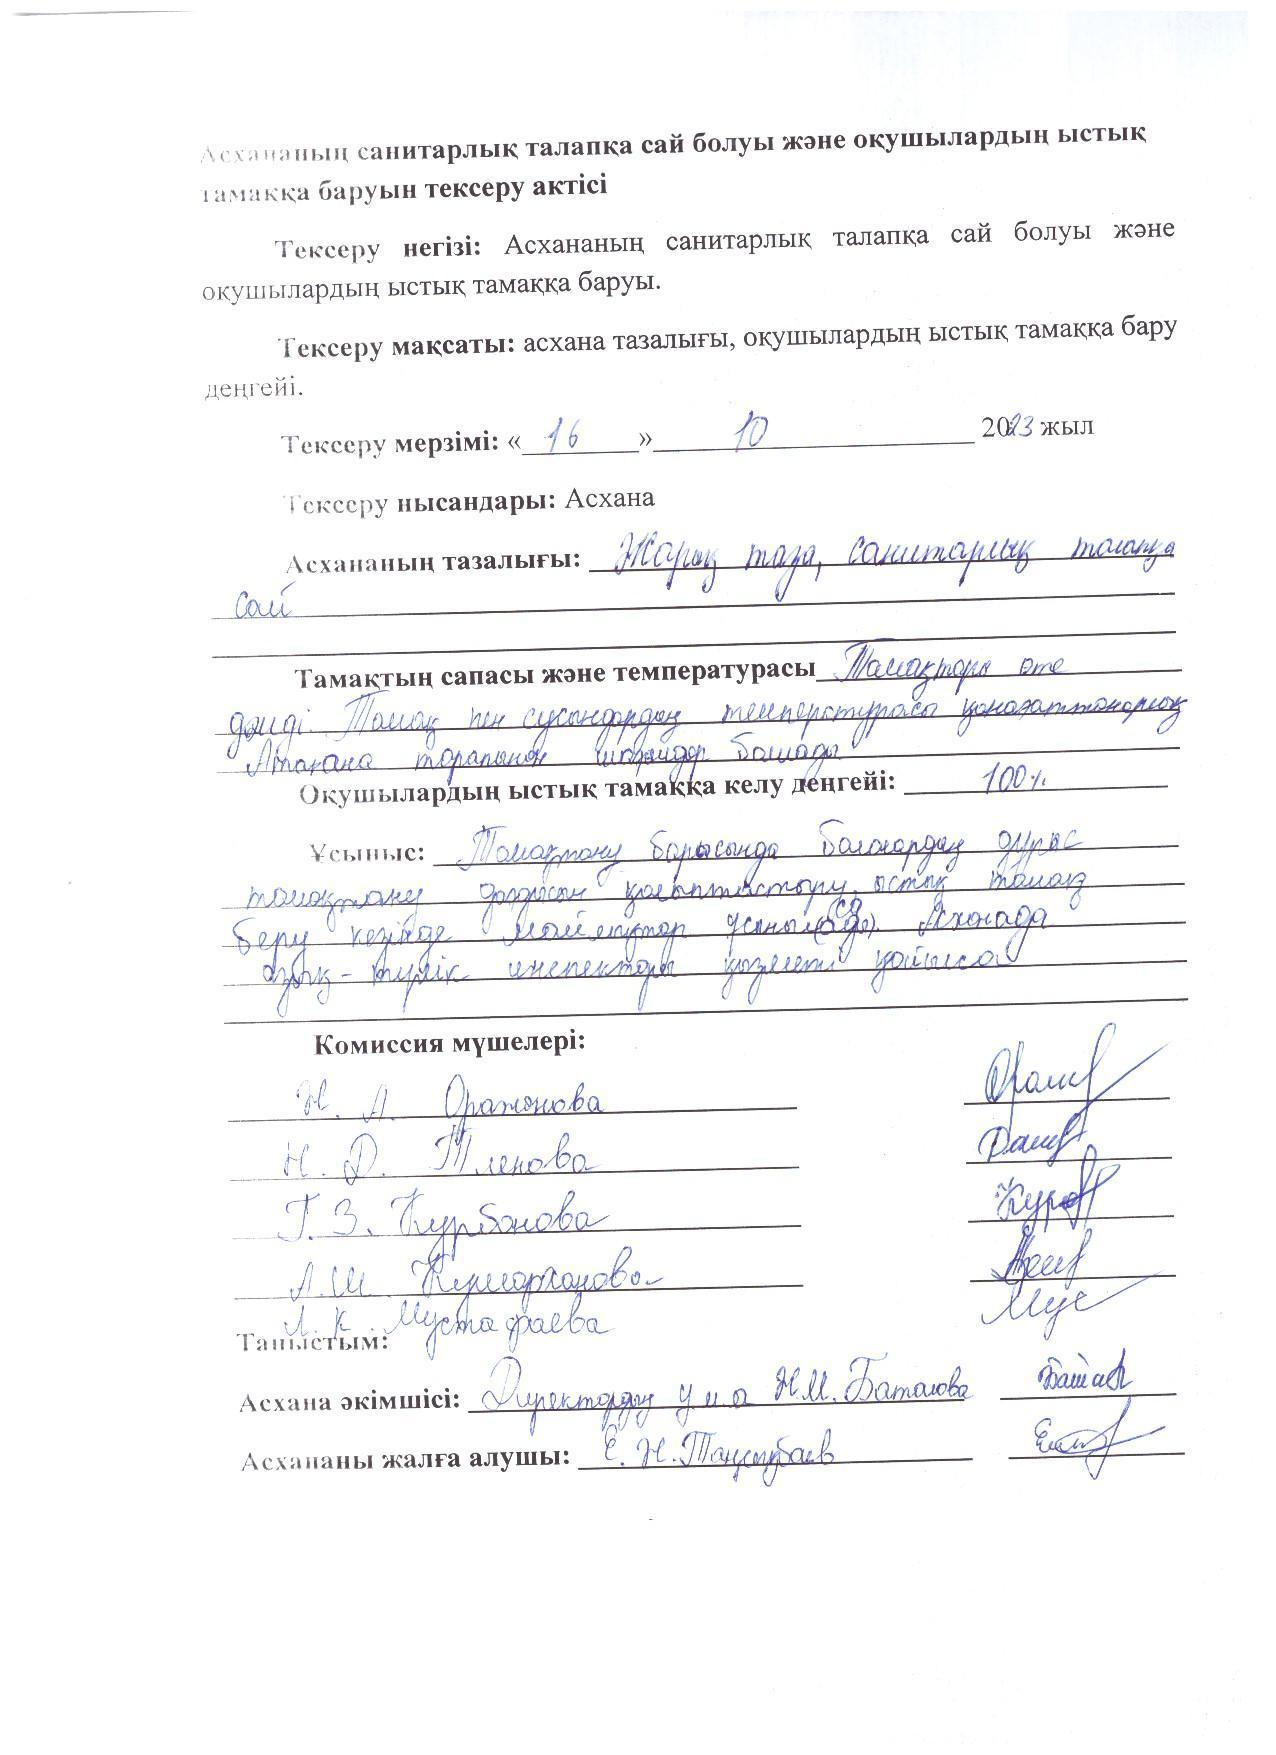 Асхананың санитарлық талапқа сай болуы және оқушылардың ыстық
тамаққа баруын тексеру актісі
Тексеру негізі: Асхананың санитарлық талапқа сай болуы және
оқушылардың ыстық тамаққа баруы.
Тексеру мақсаты: асхана тазалығы, оқушылардың ыстық тамаққа бару
деңгейі.
Тексеру мерзімі: « 16 » 10 2023 жыл
Тексеру нысандары: Асхана
Асхананың тазалығы: Жарық таза, санитарлық талапқа
сай
Тамақтың сапасы және температурасы Тамақтары өте
дәмді. Тамақ пен сусындардың температурасы қанағаттанарлық
Оқушылардың ыстық тамаққа келу деңгейі: 100%
Ұсыныс: Тамақтану барысында балалардың дұрыс
тамақтану дағдысын қалыптастыру, ыстық тамақ
беру кезінде майлықтар Асханада
азық-түлік инспекторы қызметі
Комиссия мүшелері:
Н. Д. Тленова
Г. З. Курбанова
А.Ш Кумарханова
Л. К. Мустафаева
Таныстым:
Асхана әкімшісі: Директордың у м а Н.М. Баталова
Асхананы жалға алушы: Е. Н. Таңсықбаев